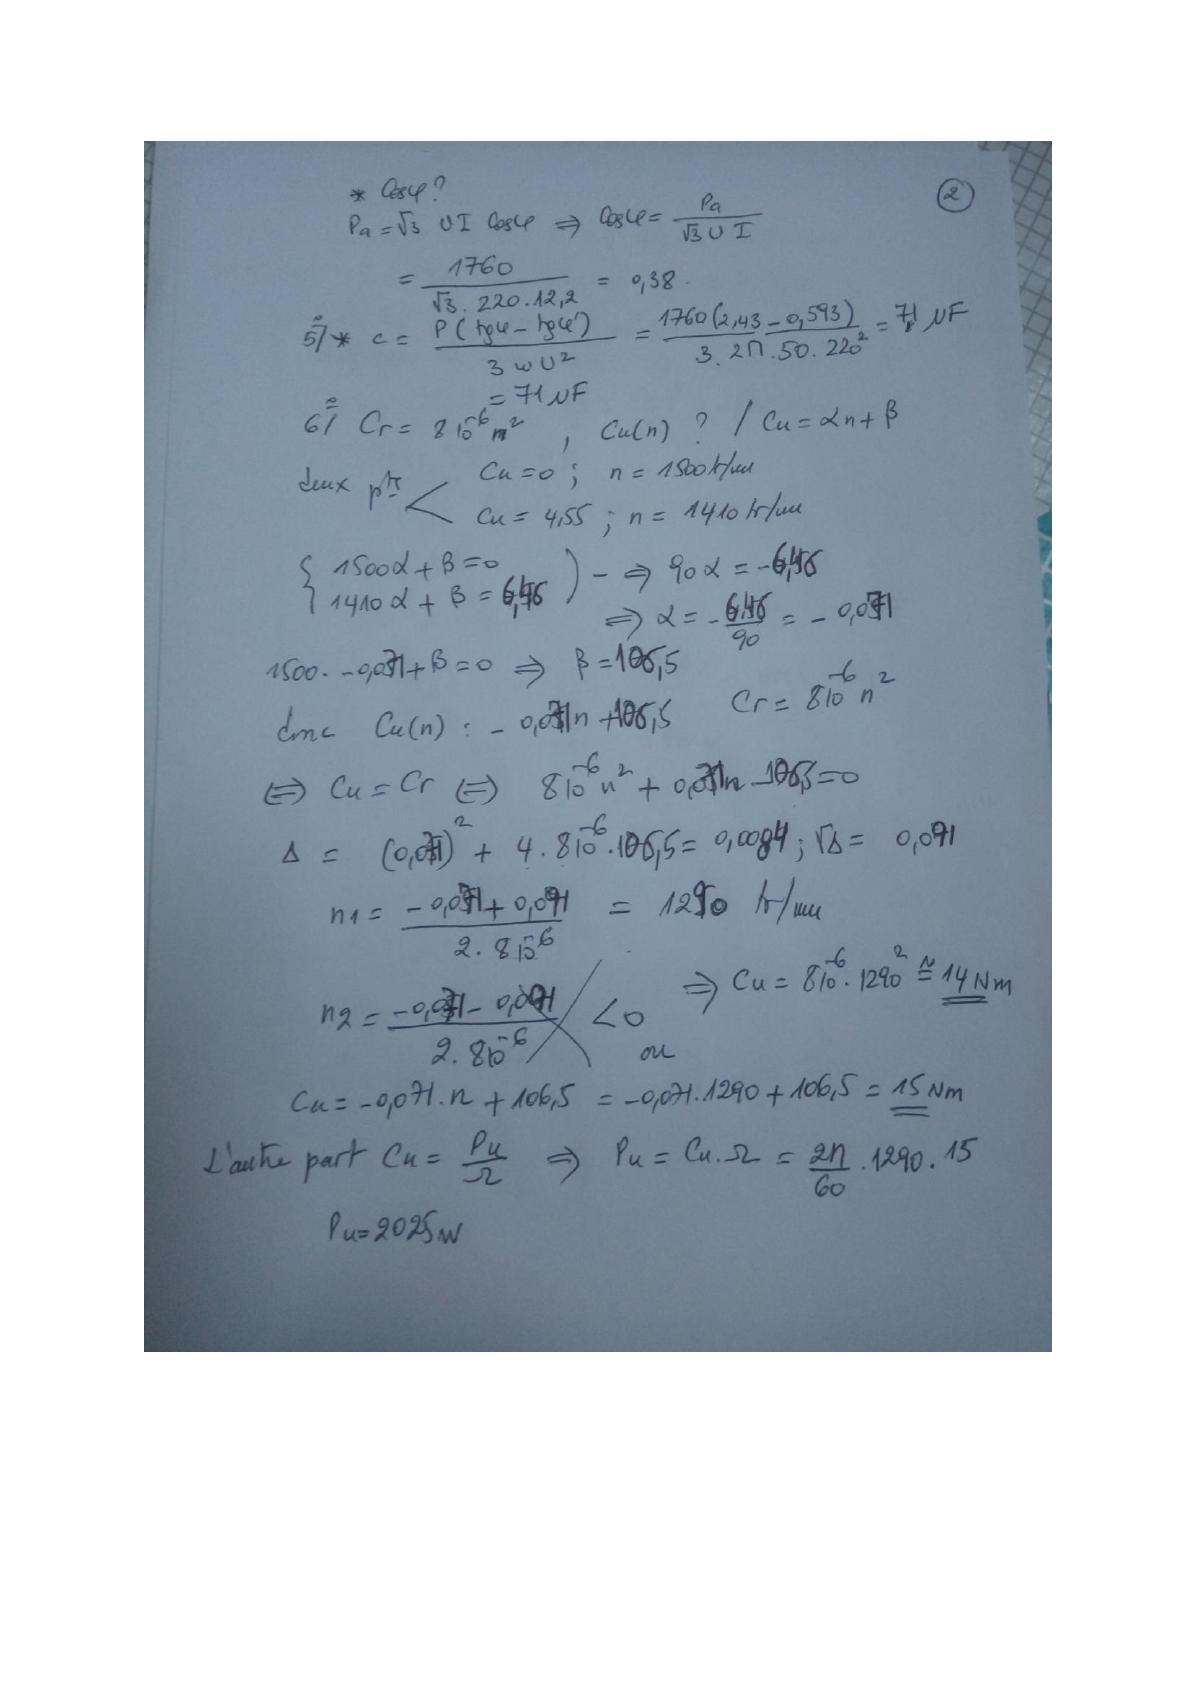 * Cosφ ?
②
Pa = √3 U I Cosφ ⇒ Cosφ = Pa / (√3 U I)
= 1760 / (√3 . 220 . 12,2) = 0,38 .
5°/ * c = P (tgφ – tgφ') / (3 ω U²) = 1760 (2,43 – 0,593) / (3 . 2π . 50 . 220²) = 71 μF
= 71 μF
6°/ Cr = 8 10⁻⁶ n² , Cu(n) ? / Cu = αn + β
deux pts < Cu = 0 ; n = 1500 tr/mn
Cu = 4,55 ; n = 1410 tr/mn
{ 1500α + β = 0
1410 α + β = ) – ⇒ 90 α = –
⇒ α = – / 90 = – 0,071
1500 . –0,071 + β = 0 ⇒ β = 106,5
donc Cu(n) : – 0,071n + 106,5 Cr = 8 10⁻⁶ n²
⇔ Cu = Cr ⇔ 8 10⁻⁶ n² + 0,071n – 106,5 = 0
Δ = (0,071)² + 4 . 8 10⁻⁶ . 106,5 = 0,0084 ; √Δ = 0,091
n1 = (–0,071 + 0,091) / (2 . 8 10⁻⁶) = 1290 tr/mn
⇒ Cu = 8 10⁻⁶ . 1290² ≃ 14 Nm
n2 = (–0,071 – 0,091) / (2 . 8 10⁻⁶) < 0
ou
Cu = –0,071 . n + 106,5 = –0,071 . 1290 + 106,5 = 15 Nm
L'autre part Cu = Pu / Ω ⇒ Pu = Cu . Ω = 2π / 60 . 1290 . 15
Pu = 2025 W